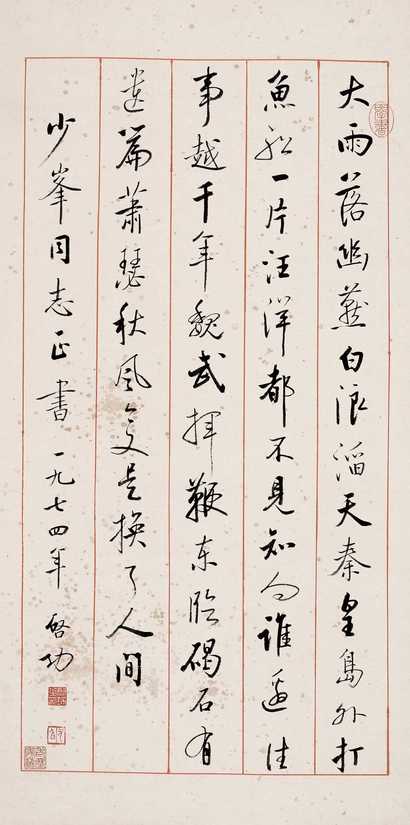 大雨落幽燕白浪滔天秦皇島外打
魚船一片汪洋都不見知向誰邊往
事越千年魏武揮鞭東臨碣石有
遺篇蕭瑟秋風今又是換了人間
少峯同志正書 一九七四年 啓功